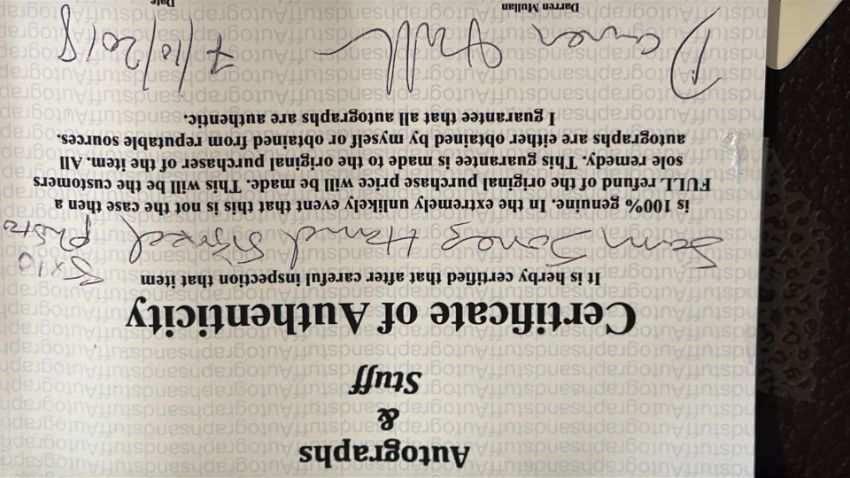 Autographs
&
Stuff
Certificate of Authenticity
It is herby certified that after careful inspection that item
Sam Jones Hand Signed 8x10 Photo
is 100% genuine. In the extremely unlikely event that this is not the case then a
FULL refund of the original purchase price will be made. This will be the customers
sole remedy. This guarantee is made to the original purchaser of the item. All
autographs are either obtained by myself or obtained from reputable sources.
I guarantee that all autographs are authentic.
7/10/2018
Darren Mullan Date